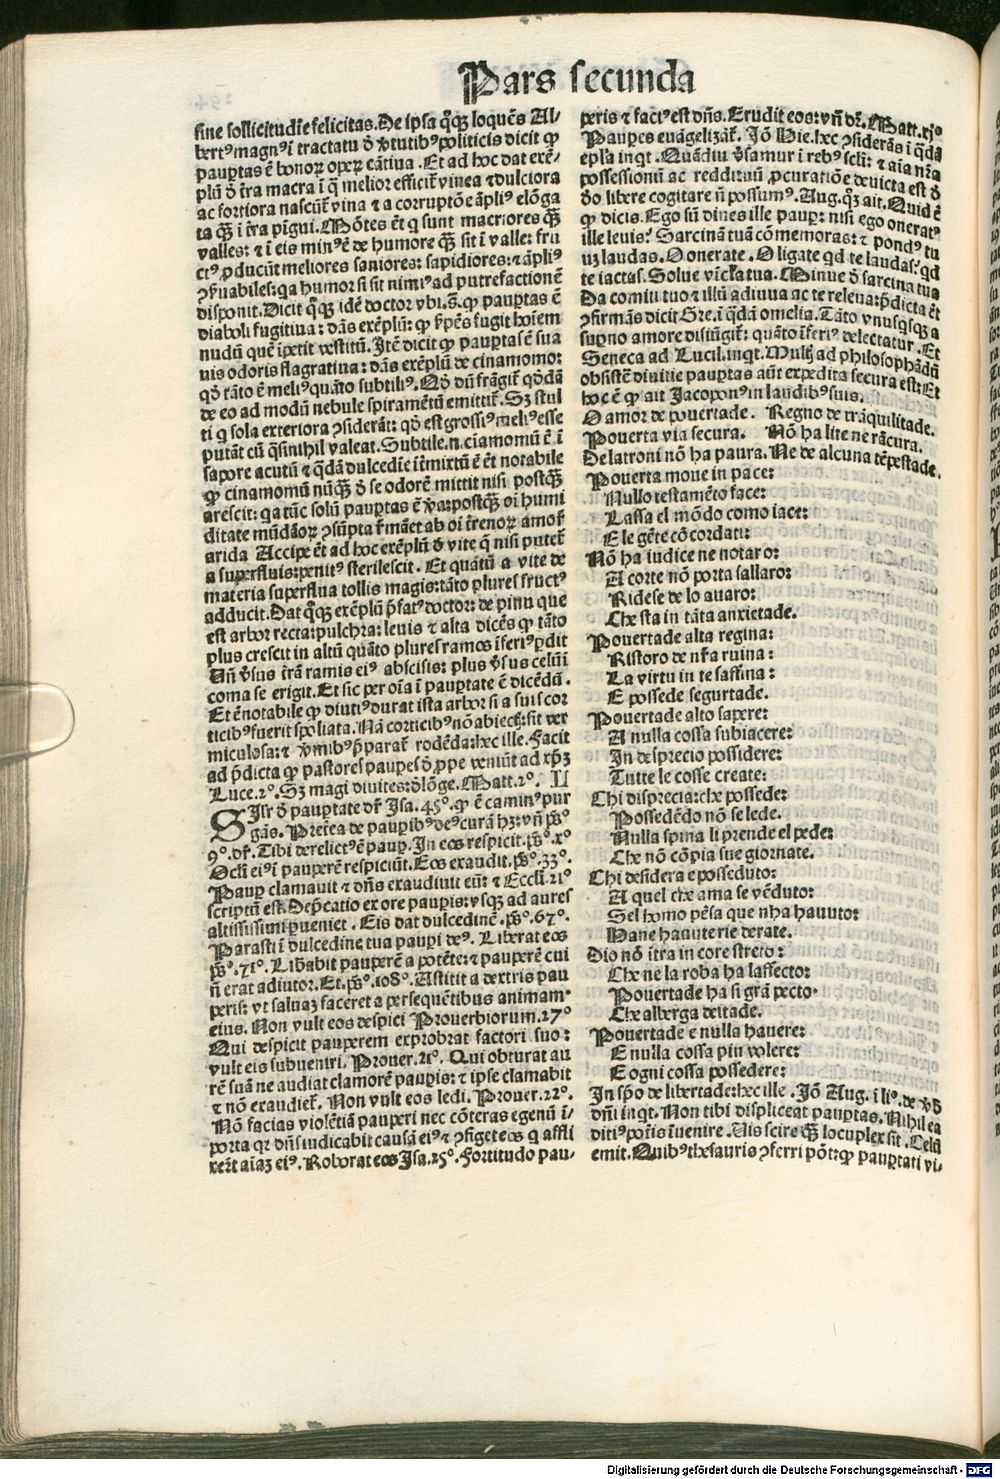 Pars secunda
sine sollicitudĩe felicitas. De ipsa q̃qꝫ loquẽs Al-
bertꝰ magnꝰ ĩ tractatu ð ꝟtutibꝰ politicis dicit ꝙ
paup̱tas ẽ bonoꝝ opeꝝ cãtiua. Et ad hoc dat exẽ-
plũ ð ťra macra ĩ q̃ melior efficit᷑ vinea ⁊ dulciora
ac fortiora nascũt᷑ vina ⁊ a corruptõe ãpliꝰ elõga
ta qꝫ̃ ĩ ťra pĩgui. Mõtes ẽt q sunt macriores qꝫ̃
valles: ⁊ ĩ eis minꝰ ẽ de humore qꝫ̃ sit ĩ valle: fru
ctꝰ ꝓducũt meliores saniores: sapidiores: ⁊ ãpliꝰ
ꝯẜuabiles: qa humoꝛ si sit nimiꝰ ad putrefactionẽ
disponit. Dicit q̃qꝫ idẽ doctoꝛ vbi.s̃. ꝙ paup̱tas ẽ
diaboli fugitiua: dãs exẽplũ: ꝙ ẜpẽs fugit hoĩem
nudũ quẽ ĩpetit vestitũ. Itẽ dicit ꝙ paup̱tas ẽ sua
uis odoris flagratiua: dãs exẽplũ de cinamomo:
qð tãto ẽ meliꝰ quãto subtiliꝰ. Qð dũ frãgit᷑ qðdã
de eo ad modũ nebule spiramẽtũ emittit᷑. Sꝫ stul
ti q sola exteriora ꝯsiderãt: qð est grossiꝰ meliꝰ esse
putãt cũ q̃si nihil valeat. Subtile.n. ciamomũ ẽ ĩ
sapore acutũ ⁊ q̃dã dulcedĩe ĩťmixtũ ẽ ẽt notabile
ꝙ cinamomũ nũqꝫ̃ ð se odorẽ mittit nisi postqꝫ̃
arescit: qa tũc solũ paup̱tas ẽ ꝟa: postqꝫ̃ oi humi
ditate mũdãoꝝ ꝯsũpta r̃mãet ab oi ťrenoꝝ amoř
arida Accipe ẽt ad hoc exẽplũ ð vite q̃ nisi putet᷑
a superfluis: penitꝰ sterilescit. Et quãtũ a vite de
materia superflua tollis magis: tãto plures fructꝰ
adducit. Dat q̃qꝫ exẽplũ p̃fatꝰ doctor: de pinu que
est arbor recta: pulchra: leuis ⁊ alta dicẽs ꝙ tãto
plus crescit in altũ quãto plures ramos ĩferiꝰ p̱dit
Uñ ꝟsus ťrã ramis eiꝰ abscisis: plus ꝟsus celũ ĩ
coma se erigit. Et sic per oĩa ĩ paup̱tate ẽ dicẽdũ.
Et ẽ notabile ꝙ diutiꝰ durat ista arbor si a suis cor
ticibꝰ fuerit spoliata. Nã corticibꝰ nõ abiectꝭ: fit ver
miculosa: ⁊ ꝟmibꝰ p̃parat᷑ rodẽda: hec ille. Facit
ad p̃dicta ꝙ pastores paup̱es ð ꝓpe veniũt ad xp̃ꝫ
Luce.2°. Sꝫ magi diuites: ð lõge. Matt.2°. II
SIlr̃ ð paup̱tate dr᷑ Isa.45°. ꝙ ẽ caminꝰ pur
gãs. Pret̃ea de paup̱ibꝰ deꝰ curã hꝫ: vñ ps̃°
9°. dr᷑. Tibi derelictꝰ ẽ paup̱. In eos respicit. ps̃°. x°
Ocľi eiꝰ ĩ pauperẽ respiciũt. Eos exaudit. ps̃°.33°.
Paup̱ clamauit ⁊ dñs exaudiuit eũ: ⁊ Eccľi.21°
scriptũ est. Dep̃catio ex ore paup̱is: vsqꝫ ad aures
altissimi p̱ueniet. Eis dat dulcedinẽ. ps̃°.67°.
Parasti ĩ dulcedine tua paup̱i deꝰ. Liberat eos
ps̃°.71°. Libãbit pauperẽ a potẽte: ⁊ pauperẽ cui
ñ erat adiutor. Et. ps̃°.108°. Astitit a dextris pau
peris: vt saluaꝫ faceret a persequẽtibus animam
eius. Non vult eos despici Prouerbiorum.17°
Qui despicit pauperem exprobrat factori suo:
vult eis subueniri. Prouer.21°. Qui obturat au
rẽ suã ne audiat clamorẽ paup̱is: ⁊ ipse clamabit
⁊ nõ exaudiet᷑. Non vult eos ledi. Prouer.22°.
Nõ facias violẽtiã pauperi nec cõteras egenũ ĩ-
porta qꝛ dñs iudicabit causã eiꝰ ⁊ ꝯfiget eos q affli
xeřt aĩaꝫ eiꝰ. Roborat eos Isa.25°. Fortitudo pau-
peris ⁊ factꝰ est dñs. Erudit eos: vñ dr᷑. Matt.xj°
Paup̱es euãgelizãt᷑. Jõ Hie. hec ꝯsiderãs ĩ q̃dã
epľa inqt. Quãdiu ꝟsamur ĩ rebꝰ secľi: ⁊ aĩa nr̃a
possessionũ ac reddituũ ꝓcuratiõe deuicta est ð
ðo libere cogitare ñ possumꝰ. Aug. qꝫ ait. Quid ẽ
ꝙ dicis. Ego sũ diues ille paup̱: nisi ego oneratꝰ
ille leuis? Sarcinã tuã cõmemoras: ⁊ pondꝰ tu
uꝫ laudas. O onerate. O ligate qd te laudas? qd
te iactas. Solue vĩcľa tua. Minue ð sarcina tua
Da comiti tuo ⁊ illũ adiuua ac te releua: p̃dicta ẽt
ꝯfirmãs dicit Gre. ĩ q̃dã omelia. Tãto vnusqsqꝫ a
sup̱no amore disiũgit᷑: quãto ĩferiꝰ delectatur. Et
Seneca ad Lucil. inqt. Multꝭ ad philosophãdũ
obsistẽt diuitie paup̱tas aũt expedita secura est: Et
hoc ẽ ꝙ ait Jacoponꝰ in laudibꝰ suis.
O amor de pouertade. Regno de trãquilitade.
Pouerta via secura. Nõ ha lite ne rãcura.
De latroni nõ ha paura. Ne de alcuna tẽpestade.
Pouerta moue in pace:
Nullo testamẽto face:
Lassa el mõdo como iace:
E le gẽte cõcordati:
Nõ ha iudice ne notaro:
A corte nõ porta sallaro:
Ridese de lo auaro:
Che sta in tãta anxietade.
Pouertade alta regina:
Ristoro de nr̃a ruina:
La virtu in te saffina:
E possede segurtade.
Pouertade alto sapere:
A nulla cossa subiacere:
In desprecio possidere:
Tutte le cosse create:
Chi disprecia: che possede:
Possedẽdo nõ se lede.
Nulla spina li prende el pede:
Che nõ cõpia sue giornate.
Chi desidera e posseduto:
A quel che ama se vẽduto:
Sel homo pẽsa que nha hauuto:
Hane hauute rie derate.
Dio nõ ĩtra in core streto:
Che ne la roba ha laffecto:
Pouertade ha si grã pecto
Che alberga deitade.
Pouertade e nulla hauere:
E nulla cossa piu volere:
E ogni cossa possedere:
In sp̃o de libertade: hec ille. Jõ Aug. ĩ li°. de ꝟƀ
dñi inqt. Non tibi displiceat paup̱tas. Nihil ea
ditiꝰ poťis ĩuenire. Uis scire qꝫ̃ locuplex sit. Celũ
emit. Quibꝰ thesauris ꝯferri põt: ꝙ paup̱tati vi-
Digitalisierung gefördert durch die Deutsche Forschungsgemeinschaft - DFG